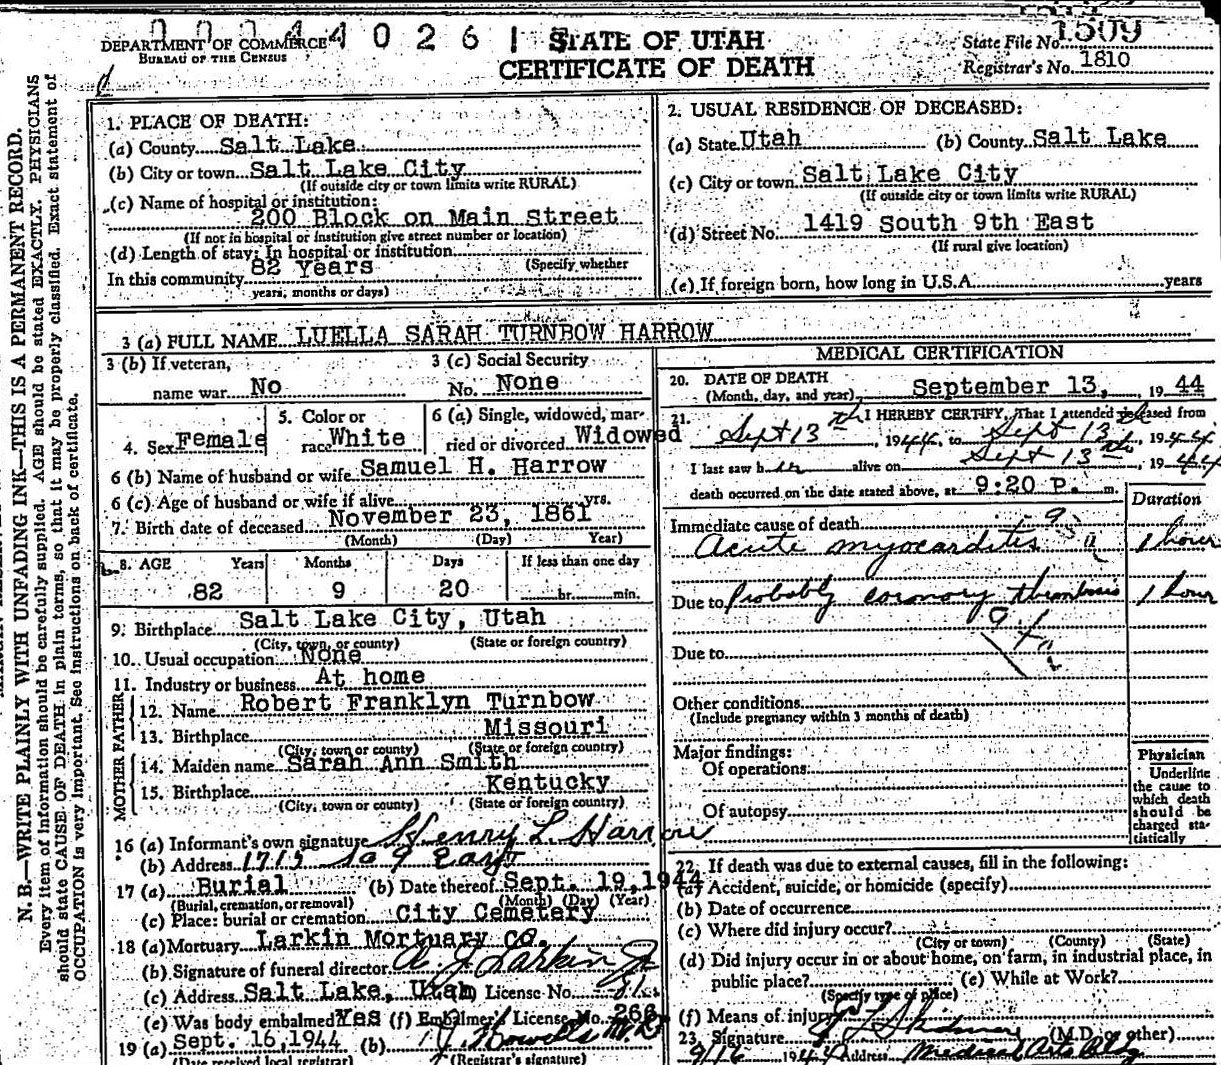 DEPARTMENT OF COMMERCE
BUREAU OF THE CENSUS
0 0 0 4 4 0 2 6 1
STATE OF UTAH
CERTIFICATE OF DEATH
State File No. 1509
Registrar's No. 1810
N. B.—WRITE PLAINLY WITH UNFADING INK—THIS IS A PERMANENT RECORD.
Every item of information should be carefully supplied. AGE should be stated EXACTLY. PHYSICIANS
should state CAUSE OF DEATH in plain terms, so that it may be properly classified. Exact statement of
OCCUPATION is very important. See instructions on back of certificate.
1. PLACE OF DEATH:
(a) County Salt Lake
(b) City or town Salt Lake City
(If outside city or town limits write RURAL)
(c) Name of hospital or institution:
200 Block on Main Street
(If not in hospital or institution give street number or location)
(d) Length of stay: In hospital or institution
(Specify whether
In this community 82 Years
years, months or days)
2. USUAL RESIDENCE OF DECEASED:
(a) State Utah (b) County Salt Lake
(c) City or town Salt Lake City
(If outside city or town limits write RURAL)
(d) Street No. 1419 South 9th East
(If rural give location)
(e) If foreign born, how long in U.S.A. years
3 (a) FULL NAME LUELLA SARAH TURNBOW HARROW
3 (b) If veteran,
name war No
3 (c) Social Security
No. None
4. Sex Female
5. Color or
race White
6 (a) Single, widowed, mar-
ried or divorced Widowed
6 (b) Name of husband or wife Samuel H. Harrow
6 (c) Age of husband or wife if alive yrs.
7. Birth date of deceased November 23, 1861
(Month) (Day) Year)
8. AGE Years Months Days If less than one day
82 9 20 hr. min.
9. Birthplace Salt Lake City, Utah
(City, town, or county) (State or foreign country)
10. Usual occupation None
11. Industry or business At home
FATHER
12. Name Robert Franklyn Turnbow
13. Birthplace Missouri
(City, town or county) (State or foreign country)
MOTHER
14. Maiden name Sarah Ann Smith
15. Birthplace Kentucky
(City, town or county) (State or foreign country)
16 (a) Informant's own signature Henry L. Harrow
(b) Address 1715 So 9 East
17 (a) Burial (b) Date thereof Sept. 19, 1944
(Burial, cremation, or removal) (Month) (Day) (Year)
(c) Place: burial or cremation City Cemetery
18 (a) Mortuary Larkin Mortuary Co.
(b) Signature of funeral director A J Larkin Jr
(c) Address Salt Lake, Utah License No. 81
(e) Was body embalmed Yes (f) Embalmer's License No. 266
19 (a) Sept. 16, 1944 (b)
(Date received local registrar) (Registrar's signature)
MEDICAL CERTIFICATION
20. DATE OF DEATH
(Month, day, and year) September 13, 1944
21. I HEREBY CERTIFY, That I attended deceased from
Sept 13th, 1944, to Sept 13th, 1944
I last saw her alive on Sept 13th, 1944
death occurred on the date stated above, at 9:20 P. m.
Duration
Immediate cause of death
Acute myocarditis 1 hour
Due to Probably coronary thrombosis 1 hour
Due to
Other conditions
(Include pregnancy within 3 months of death)
Major findings:
Of operations
Of autopsy
Physician
Underline
the cause to
which death
should be
charged sta-
tistically
22. If death was due to external causes, fill in the following:
(a) Accident, suicide, or homicide (specify)
(b) Date of occurrence
(c) Where did injury occur?
(City or town) (County) (State)
(d) Did injury occur in or about home, on farm, in industrial place, in
public place? (e) While at Work?
(Specify type of place)
(f) Means of injury
23. Signature (M.D. or other)
9/16 1944 Address Medical Arts Bldg